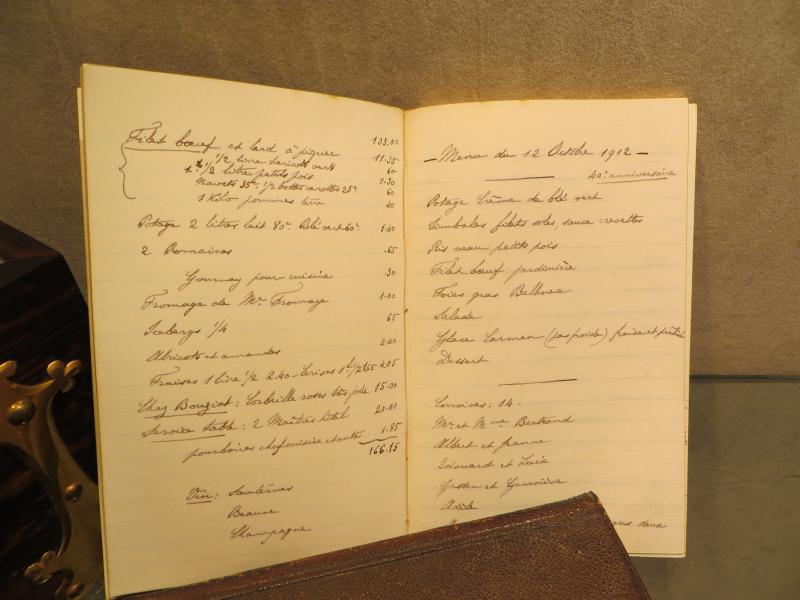 105.00
Filet bœuf et lard à piquer 11.35
1 1/2 livre haricots verts 60
1 1/2 litres petits pois 1.30
Navets 35c. 1/2 botte carottes 25c. 60
1 Kilo pommes terre 40
Potage 2 litres lait 80c. Blé vert 60c. 1.40
2 Romaines .65
Gournay pour cuisine .30
Fromage de Mr. Fromage 1.00
Icebergs 1/4 65
Abricots et amandes 2.00
Fraises 1 livre 1/2 2.40 - Cerises 1 l. 1/2 1.65 4.05
Chez Bouziat : Corbeille roses très jolie 15.00
Service table : 2 Maîtres hôtel 20.00
pourboires chef cuisine et autres 1.85
166.15
Vin : Sauternes
Beaune
Champagne
- Menu du 12 Octobre 1912 -
40e anniversaire
Potage Crême de blé vert
Timbales filets soles, sauce crevettes
Ris veau petits pois
Filet bœuf jardinière
Foies gras
Salade
Glace Carmen (pas froide) fraise et
Dessert
Convives : 14.
Mr. et Mme Bertrand
Albert et Jeanne
Edouard et Lucie
Gaston et Geneviève
deux